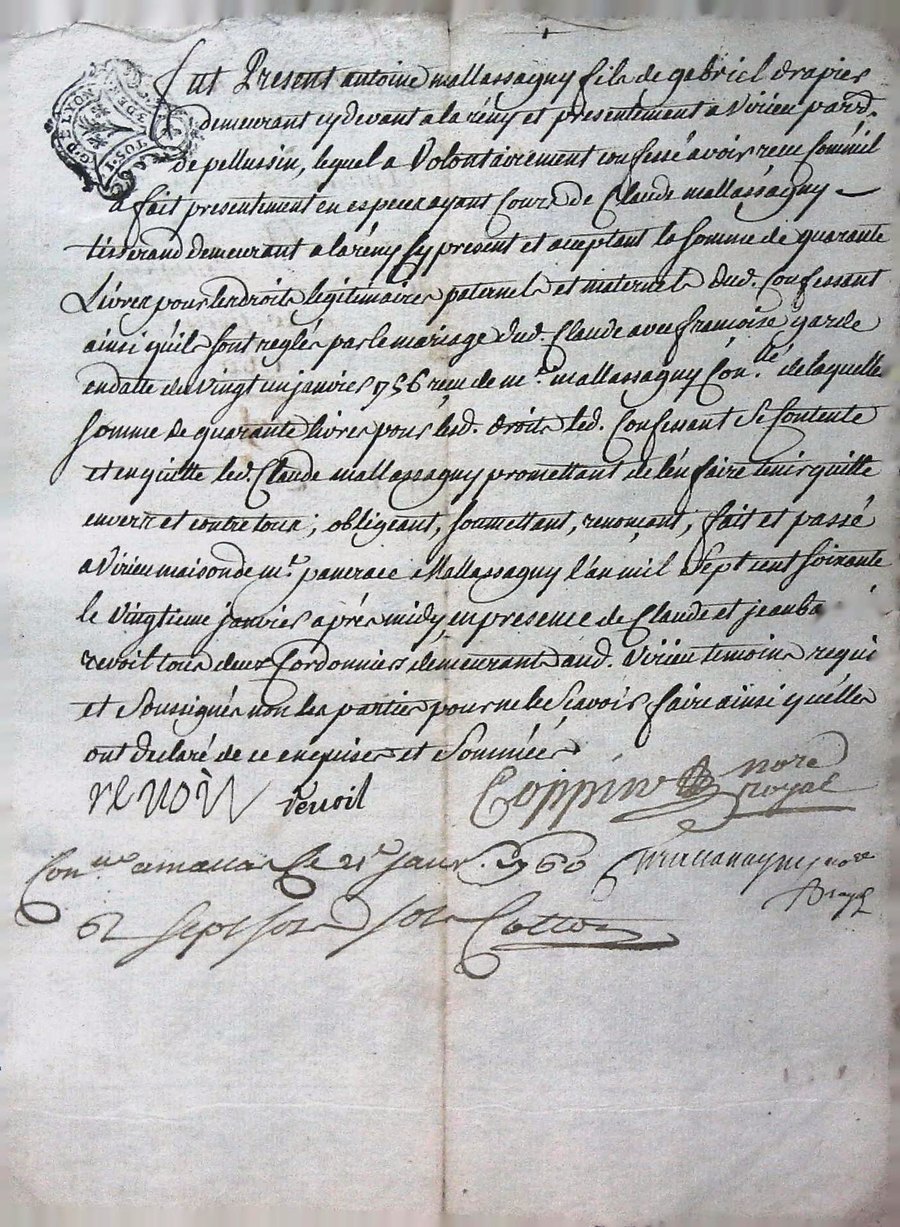 G. DE LYON
1 SOL 3 DEN
fut Present antoine mallassagny fils de gabriel drapier
demeurant cy devant a la rény et presentement a Virieu parr.
de pellussin, lequel a Volontairement confessé avoir receu comme il
a fait presentement en especes ayant Cours de Claude mallassagny
tisserand demeurant a la rény cy present et aceptant la somme de quarante
Livres pour les droits legitimaires paternels et maternels dud. Confessant
ainsi qu'ils sont reglés par le mariage dud. Claude avec francoise garde
en datte du Vingt un janvier 1756 reçu de me. mallassagny Con.lé de laquelle
somme de quarante livres pour lesd. droits led. Confessant Se Contente
et en quitte led. Claude mallassagny promettant de l'en faire tenir quitte
envers et contre tous; obligeant, soumettant, renonçant, fait et passé
a Virieu maison de me. pancrace Mallassagny l'an mil Sept cent soixante
le Vingtieme janvier après midy en presence de Claude et jean ba
revoil tous deux Cordonniers demeurants aud. Virieu temoins requi
et Soussignés non les parties pour ne le Scavoir faire ainsi qu'elles
ont declaré de ce enquises et Sommées
revoil revoil Coppin nore royal
Con.lle a le 21e janv. 1760 Mallassagny nore
Royal
sept sols